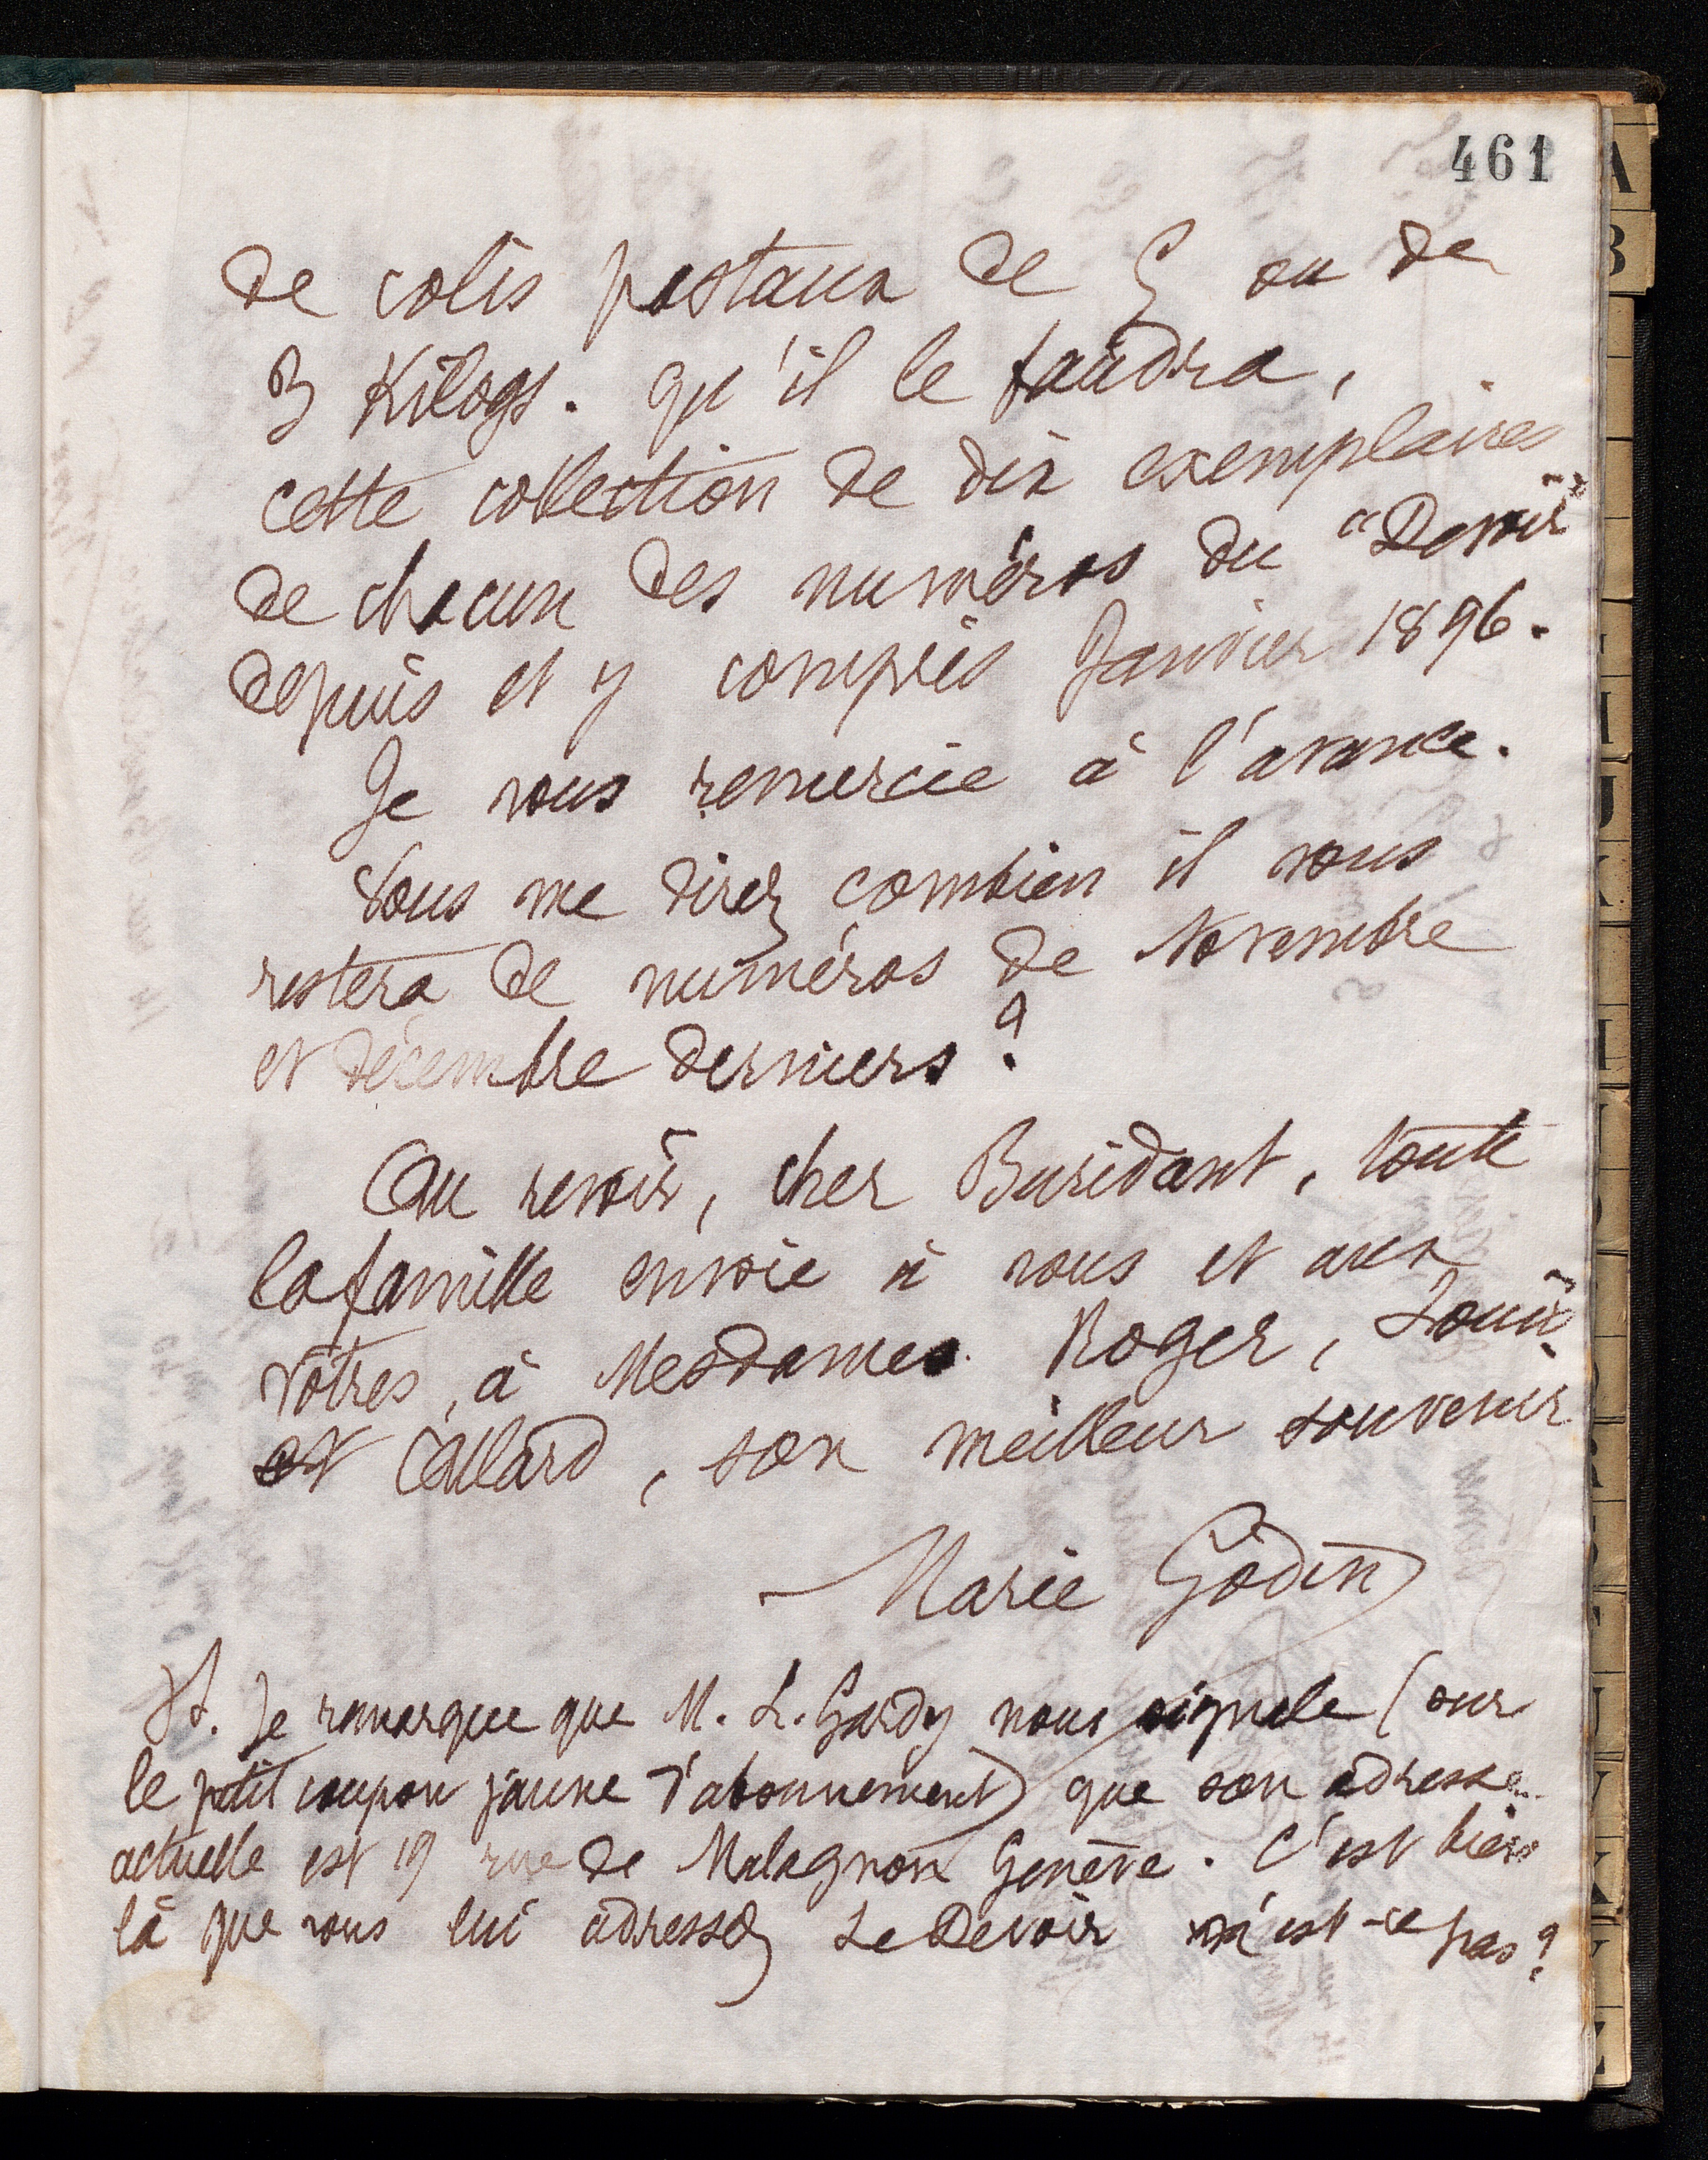 461
de colis postaux de 5 ou de
3 Kilogs. qu'il le faudra,
cette collection de dix exemplaires
de chacun des numéros du "Devoir"
depuis et y compris Janvier 1896.
Je vous remercie à l'avance.
Vous me direz combien il vous
restera de numéros de Novembre
et décembre derniers ?
Au revoir, cher Buridant, toute
la famille envoie à vous et aux
vôtres, à Mesdames Roger, Louis
et Allard, son meilleur souvenir
Marie Godin
PS. Je remarque que M. L. Gardy nous signale (sur
le petit coupon jaune d'abonnement) que son adresse
actuelle est 19 rue de Malagnon Genève. C'est bien
là que vous lui adressez Le Devoir n'est-ce pas ?
A
B